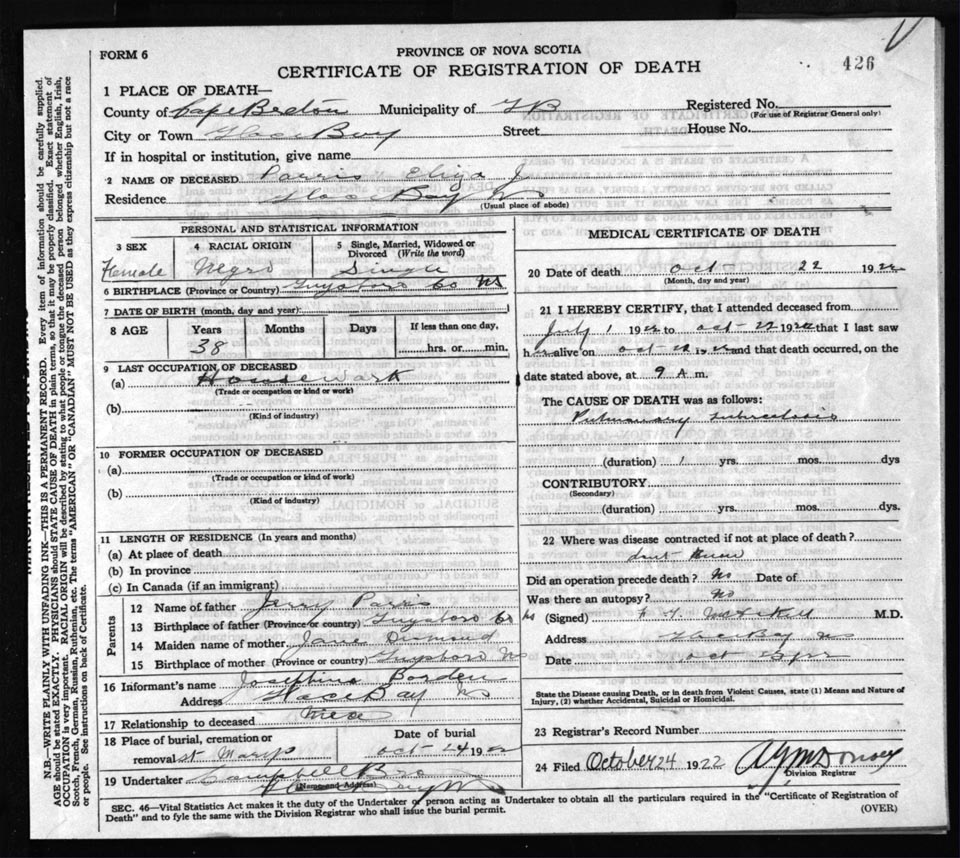 FORM 6
PROVINCE OF NOVA SCOTIA
CERTIFICATE OF REGISTRATION OF DEATH
426
1 PLACE OF DEATH—
County of Cape Breton Municipality of GB Registered No.
(For use of Registrar General only)
City or Town Glace Bay Street House No.
If in hospital or institution, give name
2 NAME OF DECEASED Parris Eliza J
Residence Glace Bay NS
(Usual place of abode)
PERSONAL AND STATISTICAL INFORMATION
3 SEX 4 RACIAL ORIGIN 5 Single, Married, Widowed or Divorced (Write the word)
Female Negro Single
6 BIRTHPLACE (Province or Country) Guysboro Co NS
7 DATE OF BIRTH (month, day and year)
8 AGE Years Months Days If less than one day,
38 hrs. or min.
9 LAST OCCUPATION OF DECEASED
(a) House Work
(Trade or occupation or kind or work)
(b)
(Kind of industry)
10 FORMER OCCUPATION OF DECEASED
(a)
(Trade or occupation or kind of work)
(b)
(Kind of industry)
11 LENGTH OF RESIDENCE (In years and months)
(a) At place of death
(b) In province
(c) In Canada (if an immigrant)
Parents
12 Name of father Jerry Paris
13 Birthplace of father (Province or country) Guysboro Co NS
14 Maiden name of mother Jane Desmond
15 Birthplace of mother (Province or country) Guysboro NS
16 Informant's name Josephine Borden
Address Glace Bay NS
17 Relationship to deceased
18 Place of burial, cremation or removal Date of burial
St Marys Oct 24 19
19 Undertaker Campbell Bro
(Name and Address)
MEDICAL CERTIFICATE OF DEATH
20 Date of death Oct 22 1922
(Month, day and year)
21 I HEREBY CERTIFY, that I attended deceased from
July 1 1922 to Oct 22 1922 that I last saw
her alive on Oct and that death occurred, on the
date stated above, at 9 A m.
The CAUSE OF DEATH was as follows:
Pulmonary Tuberculosis
(duration) 1 yrs. mos. dys
CONTRIBUTORY
(Secondary)
(duration) yrs. mos. dys.
22 Where was disease contracted if not at place of death?
dont know
Did an operation precede death? No Date of
Was there an autopsy? No
(Signed) M.D.
Address Glace Bay NS
Date Oct
State the Disease causing Death, or in death from Violent Causes, state (1) Means and Nature of
Injury, (2) whether Accidental, Suicidal or Homicidal.
23 Registrar's Record Number
24 Filed October 24 1922
Division Registrar
SEC. 46—Vital Statistics Act makes it the duty of the Undertaker or person acting as Undertaker to obtain all the particulars required in the "Certificate of Registration of
Death" and to fyle the same with the Division Registrar who shall issue the burial permit. (OVER)
N.B.—WRITE PLAINLY WITH UNFADING INK—THIS IS A PERMANENT RECORD. Every item of information should be carefully supplied.
AGE should be stated EXACTLY. PHYSICIANS should STATE CAUSE OF DEATH in plain terms, so that it may be properly classified. Exact statement of
OCCUPATION is very important. RACIAL ORIGIN will be described by stating to what people or tongue the deceased person belonged whether English, Irish,
Scotch, French, German, Russian, Ruthenian, etc. The terms "AMERICAN" OR "CANADIAN" MUST NOT BE USED as they express citizenship but not a race
or people. See instructions on back of Certificate.